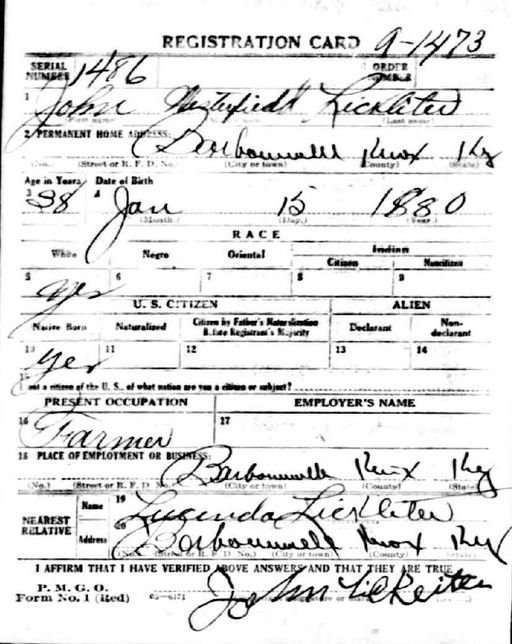 REGISTRATION CARD 9-1473
SERIAL NUMBER 1486 ORDER NUMBER
1 John Lickliter
(First name) (Last name)
2 PERMANENT HOME ADDRESS:
Barbourville Knox Ky
(No.) (Street or R. F. D. No.) (City or town) (County) (State)
Age in Years Date of Birth
3 38 4 Jan 15 1880
(Month.) (Day.) (Year.)
RACE
White Negro Oriental Indian
Citizen Noncitizen
5 yes 6 7 8 9
U. S. CITIZEN ALIEN
Native Born Naturalized Citizen by Father's Naturalization Before Registrant's Majority Declarant Non-declarant
10 yes 11 12 13 14
15 If not a citizen of the U. S., of what nation are you a citizen or subject?
PRESENT OCCUPATION EMPLOYER'S NAME
16 Farmer 17
18 PLACE OF EMPLOYMENT OR BUSINESS:
Barbourville Knox Ky
(No.) (Street or R. F. D. No.) (City or town) (County) (State)
NEAREST RELATIVE Name 19 Lucinda Lickliter
Address 20 Barbourville Knox Ky
(No.) (Street or R. F. D. No.) (City or town) (County) (State)
I AFFIRM THAT I HAVE VERIFIED ABOVE ANSWERS AND THAT THEY ARE TRUE
P. M. G. O.
Form No. 1 (Red) 03-6171 John Lickliter